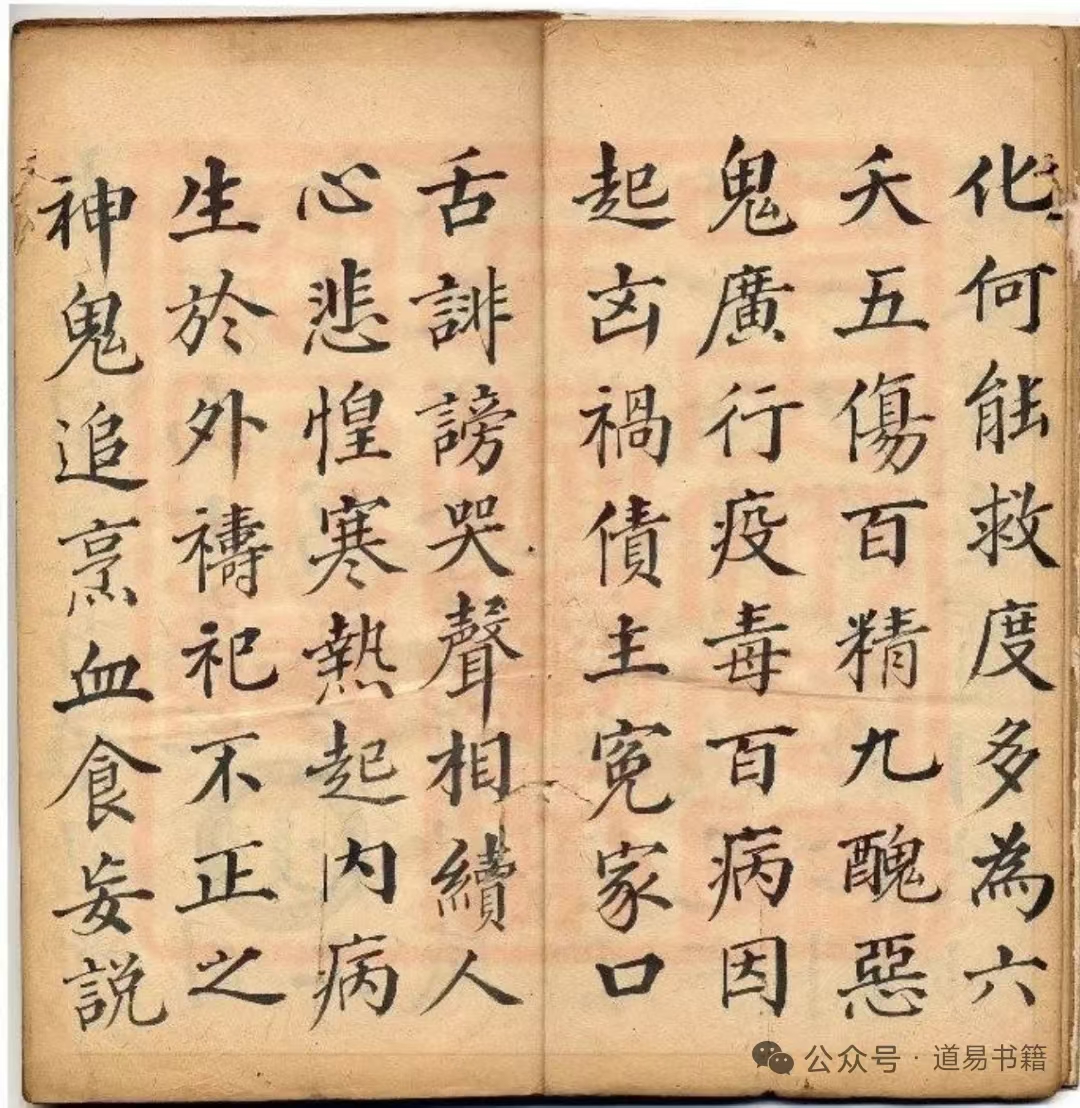 化何能救度多為六
夭五傷百精九醜惡
鬼廣行疫毒百病因
起凶禍債主寃家口
舌誹謗哭聲相續人
心悲惶寒熱起內病
生於外禱祀不正之
神鬼追烹血食妄説
公众号·道易书籍